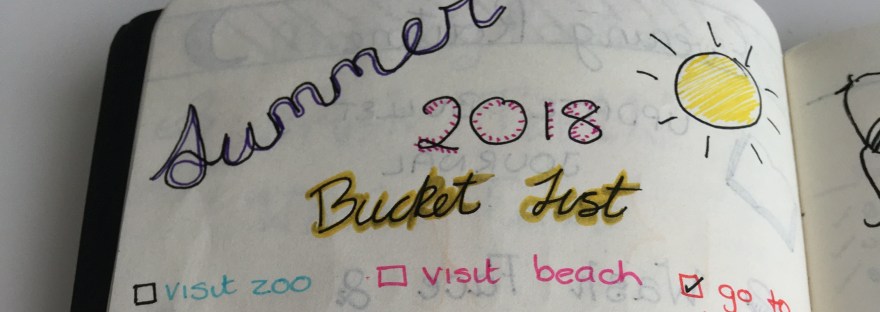 Summer
2018
Bucket List
visit zoo
visit beach
go to